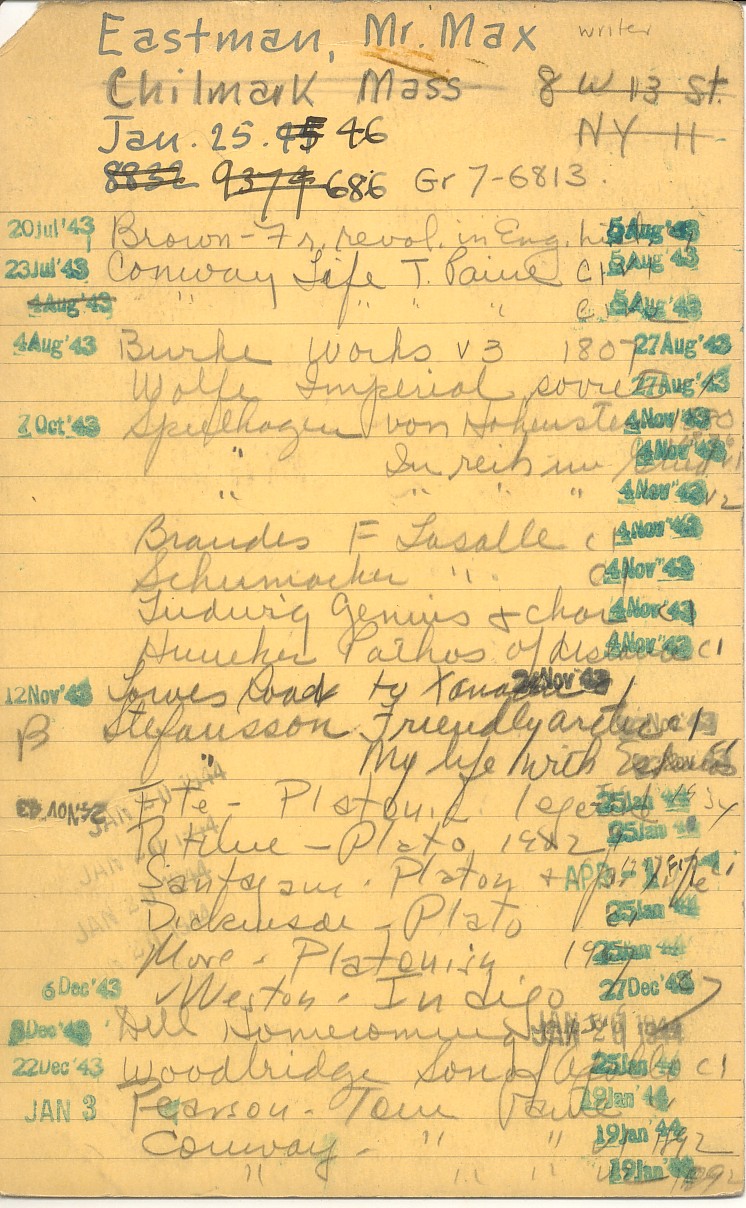 Eastman, Mr. Max writer
Chilmark Mass 8 W 13 St.
Jan. 25. 45 46 NY 11
8832 9374 686 Gr 7-6813.
20 Jul '43 Brown - Fr. revol. in Eng. hist 5 Aug '43
23 Jul '43 Conway Life T. Paine c1 v1 5 Aug '43
4 Aug '43 " " " " 5 Aug '43
4 Aug '43 Burke Works v3 1807 27 Aug '43
Wolfe Imperial soviets 27 Aug '43
7 Oct '43 Spielhagen von Hohenstein 4 Nov '43
" In reih un Glied v1 4 Nov '43
" " " " v2 4 Nov '43
Brandes F Lasalle c1 4 Nov '43
Schumacher " c1 4 Nov '43
Ludwig Genius & char c1 4 Nov '43
Huneker Pathos of distance c1 4 Nov '43
12 Nov '43 Lowes Road to Xanadu 24 Nov '43
B Stefansson Friendly arctic c1 Nov '43
" My life with Eskimos
24 NOV 43 Fite - Platonic legend 1934 25 Jan 44
JAN 20 1944
Ritchie - Plato 1902 25 Jan 44
JAN 20 1944
Santayana - Platon & spir life c1 APR
JAN 20 1944
Dickinson - Plato c1 25 Jan 44
More - Platonism 25 Jan 44
6 Dec '43 Weston - Indigo 27 Dec '43
8 Dec '43 Dell Homecoming JAN 20 1944
22 Dec '43 Woodbridge Son of Apollo c1 25 Jan 44
JAN 3 Pearson - Tom Paine 19 Jan '44
Conway - " " v1 1892 19 Jan '44
" " " 1892 19 Jan '44